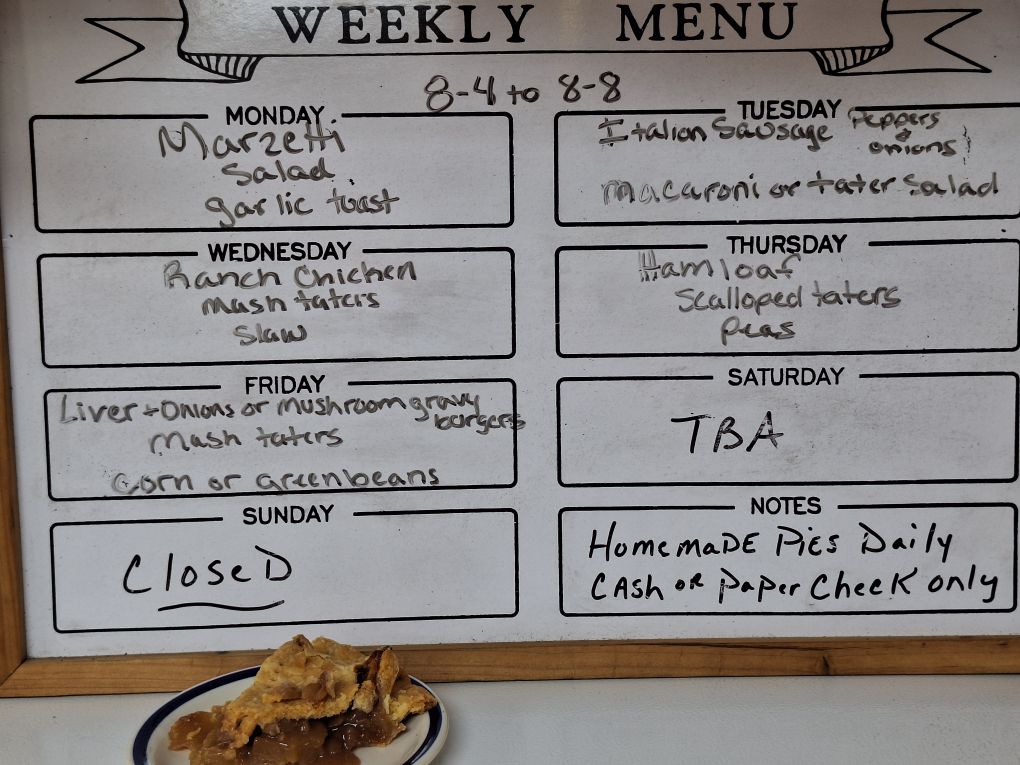 WEEKLY MENU
8-4 to 8-8
MONDAY
Marzetti
Salad
garlic toast
TUESDAY
Italian Sausage Peppers & onions
macaroni or tater salad
WEDNESDAY
Ranch Chicken
mash taters
Slaw
THURSDAY
Hamloaf
Scalloped taters
peas
FRIDAY
Liver + Onions or mushroom gravy burgers
mash taters
Corn or greenbeans
SATURDAY
TBA
SUNDAY
CloseD
NOTES
HomemaDE PiEs Daily
CAsh or PaperCheck only